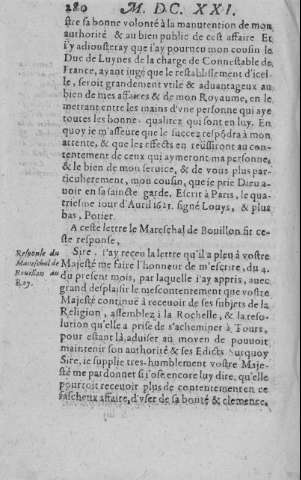 280 M. DC. XXI.
stre sa bonne volonté à la manutention de mon
authorité & au bien public de cest affaire Et
i'y adiousteray que i'ay pourueu mon cousin le
Duc de Luynes de la charge de Connestable de
France, ayant iugé que le restablissement d'icel-
le, seroit grandement vtile & aduantageux au
bien de mes affaires & de mon Royaume, en le
mettant entre les mains d'vne personne qui aye
toutes les bonnes qualitez qui sont en luy. En
quoy ie m'asseure que le succez respõdra à mon
attente, & que les effects en reüssiront au con-
tentement de ceux qui aymeront ma personne,
& le bien de mon seruice, & de vous plus par-
ticulierement, mon cousin, que ie prie Dieu a-
uoir en sa saincte garde. Escrit à Paris, le qua-
triesme iour d'Auril 1621. signé Louys, & plus
bas, Potier.
A ceste lettre le Mareschal de Bouillon fit ce-
ste response,
Response du
Mareschal de
Bouillon au
Roy.
Sire. i'ay receu la lettre qu'il a pleu à vostre
Majesté me faire l'honneur de m'escrire, du 4.
du present mois, par laquelle i'ay appris, auec
grand desplaisir le mescontentement que vostre
Majesté continuë à receuoir de ses subjets de la
Religion, assemblez à la Rochelle, & la reso-
lution qu'elle a prise de s'acheminer à Tours,
pour estant là, aduiser au moyen de pouuoir
maintenir son authorité & ses Edicts Surquoy
Sire, ie supplie tres-humblement vostre Maje-
sté me pardonner si i'ose encore luy dire, qu'elle
pourroit receuoir plus de contentement en ce
fascheux affaire, d'vser de sa bonté & clemence,